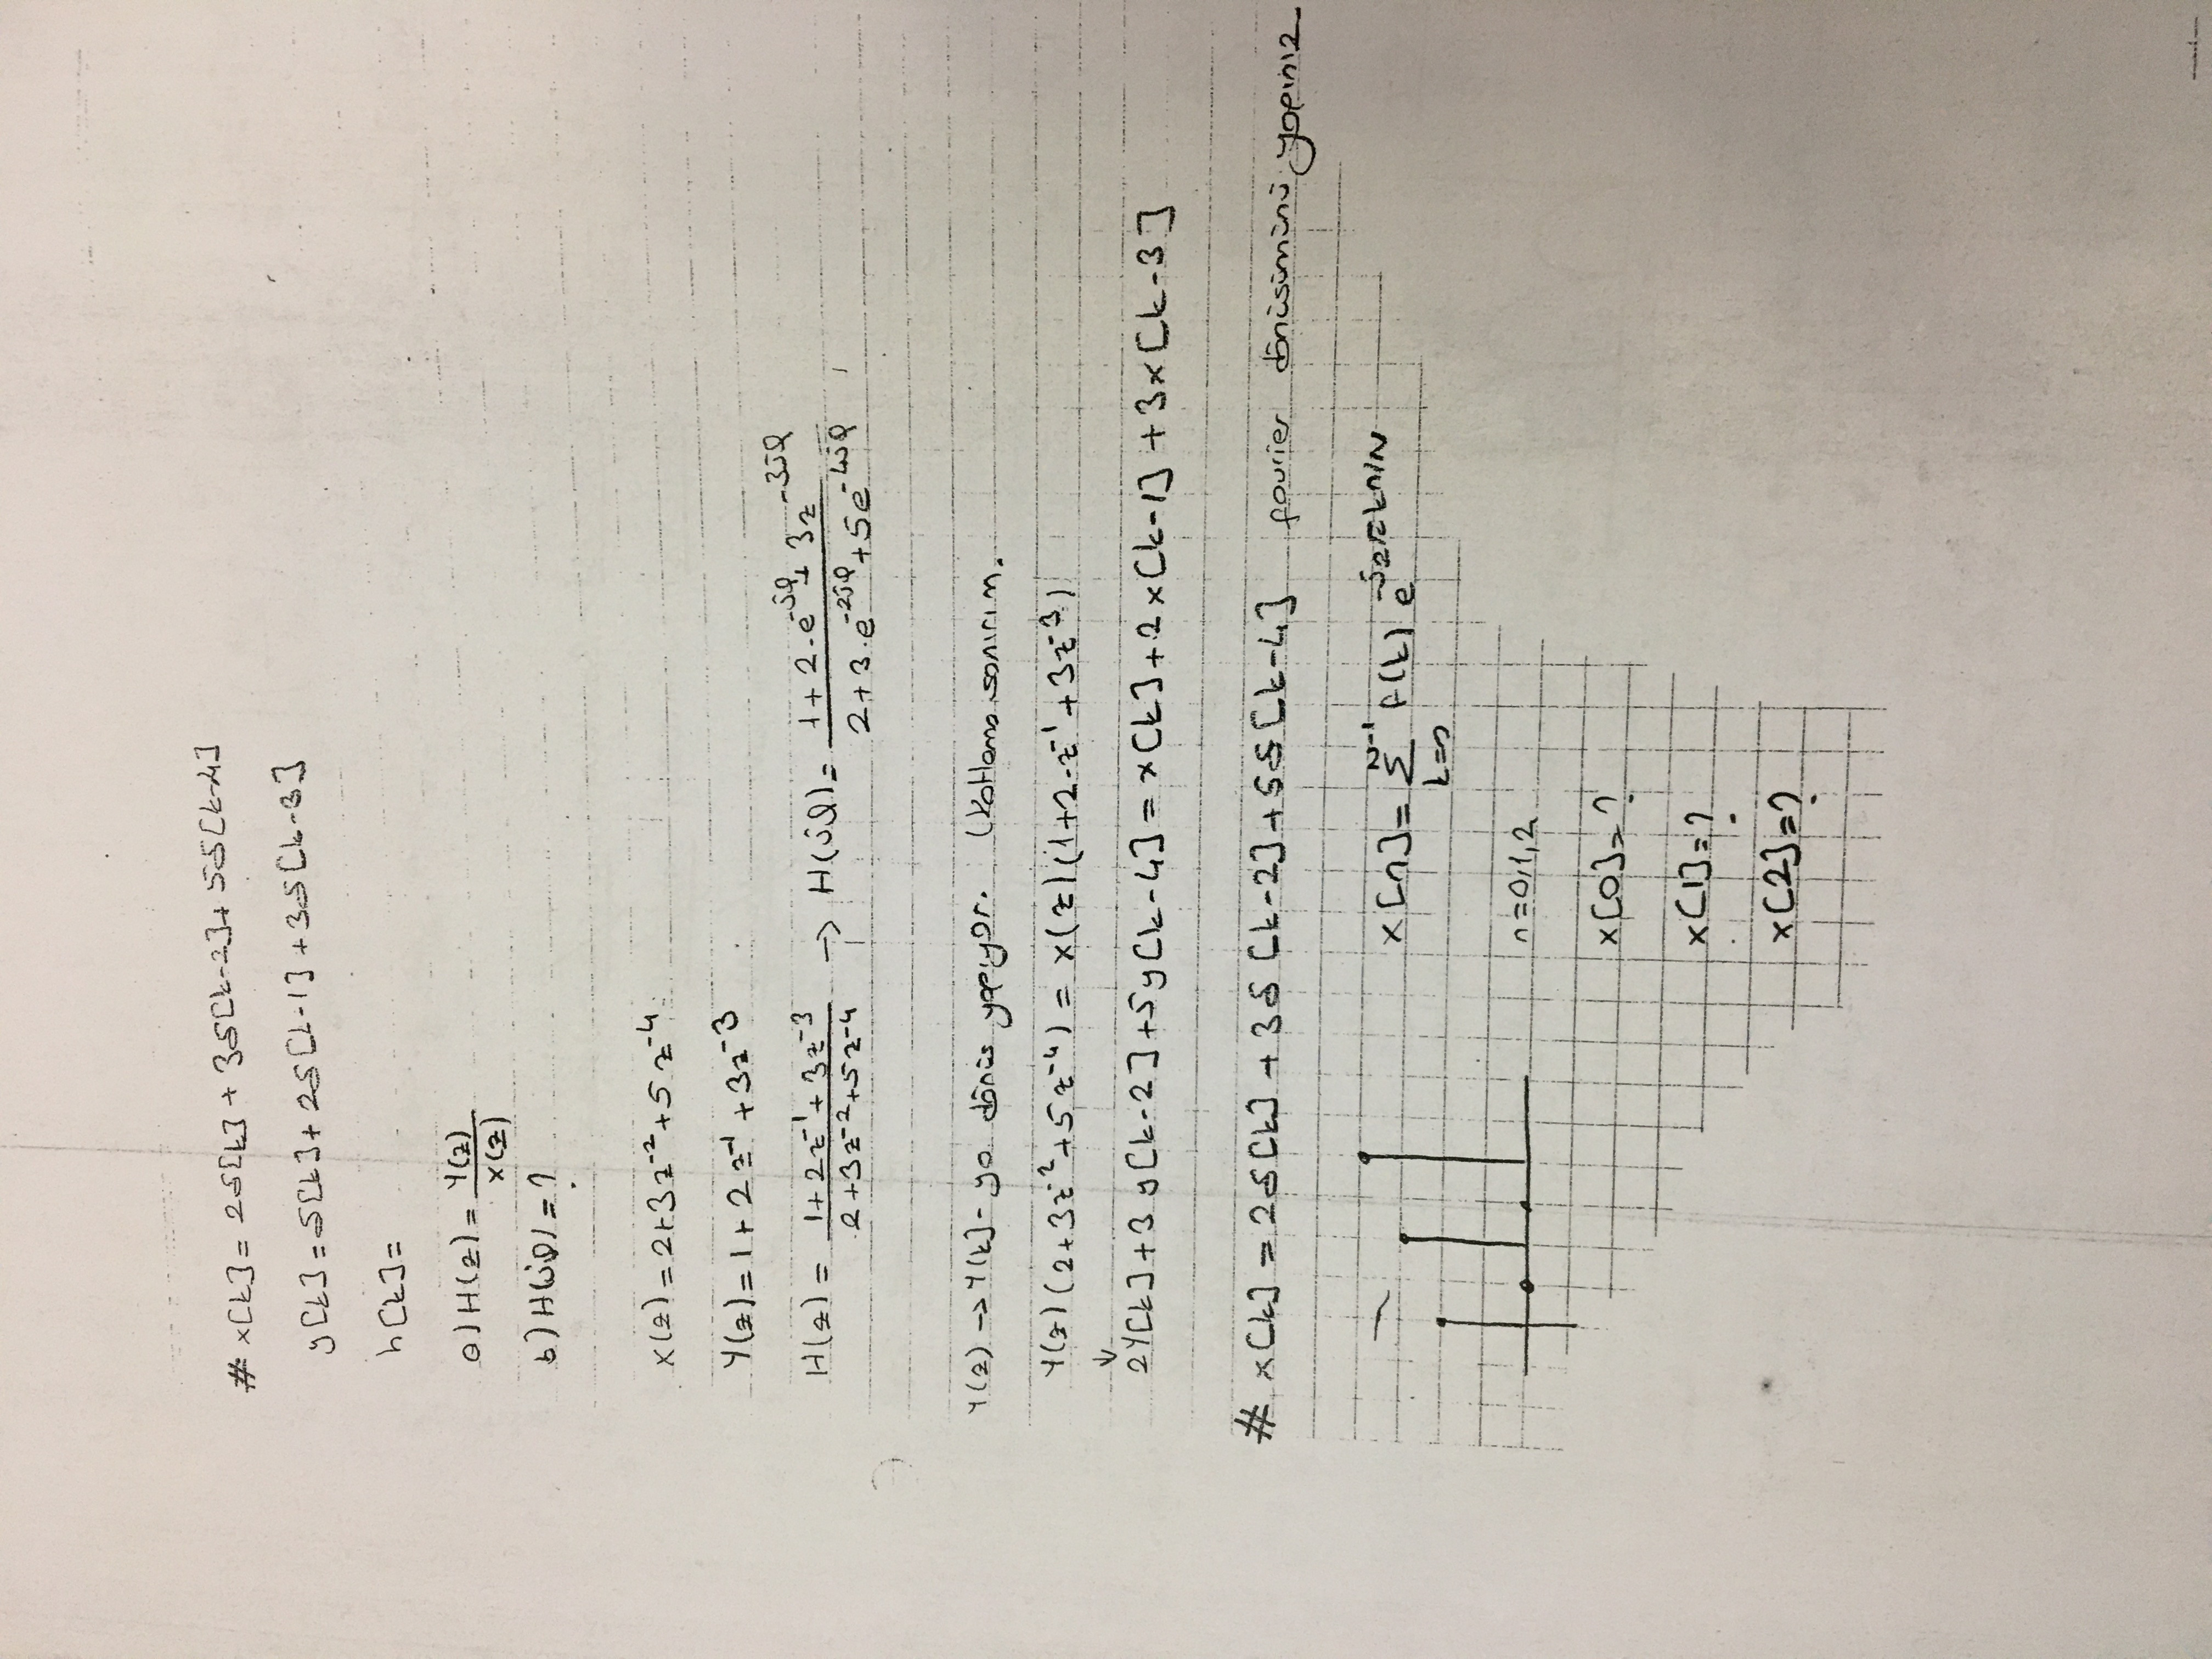 # x[k] = 2δ[k] + 3δ[k-2] + 5δ[k-4]
y[k] = δ[k] + 2δ[k-1] + 3δ[k-3]
h[k] =
a) H(z) = Y(z) / X(z)
b) H(jΩ) = ?
X(z) = 2+3z⁻² + 5z⁻⁴
Y(z) = 1 + 2z⁻¹ + 3z⁻³
H(z) = (1+2z⁻¹+3z⁻³) / (2+3z⁻²+5z⁻⁴) → H(jΩ) = (1+2·e^(-jΩ) + 3z^(-3jΩ)) / (2+3·e^(-2jΩ) + 5e^(-4jΩ))
Y(z) → Y(k]-ya dönüş yapıyor. (Katlama sanırım.
Y(z)(2+3z⁻²+5z⁻⁴) = X(z)(1+2·z⁻¹+3z⁻³)
↓
2Y[k] + 3y[k-2] + 5y[k-4] = x[k] + 2x[k-1] + 3x[k-3]
# x[k] = 2δ[k] + 3δ[k-2] + 5δ[k-4] fourier dönüsümünü yapınız
x[n] = Σ_(k=0)^(N-1) f(k) e^(j2πkn/N)
n=0,1,2
x[0] = ?
x[1] = ?
x[2] = ?